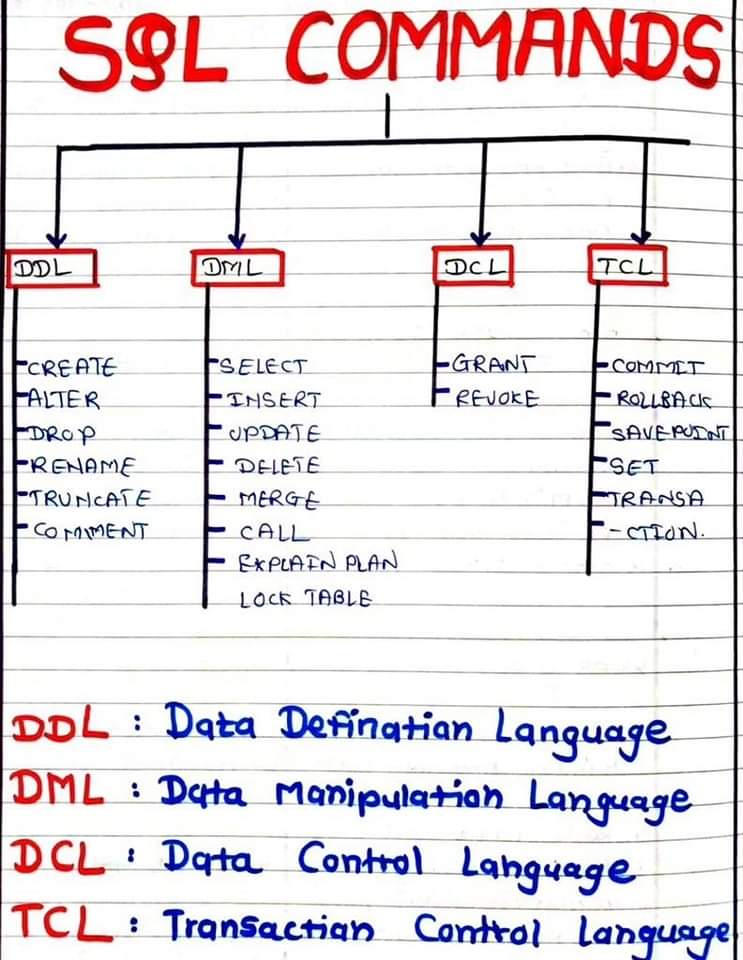 SQL COMMANDS
DDL
DML
DCL
TCL
CREATE
ALTER
DROP
RENAME
TRUNCATE
COMMENT
SELECT
INSERT
UPDATE
DELETE
MERGE
CALL
EXPLAIN PLAN
LOCK TABLE
GRANT
REVOKE
COMMIT
ROLLBACK
SAVEPOINT
SET
TRANSA
-CTION.
DDL : Data Defination Language
DML : Data Manipulation Language
DCL : Data Control Language
TCL : Transaction Control Language